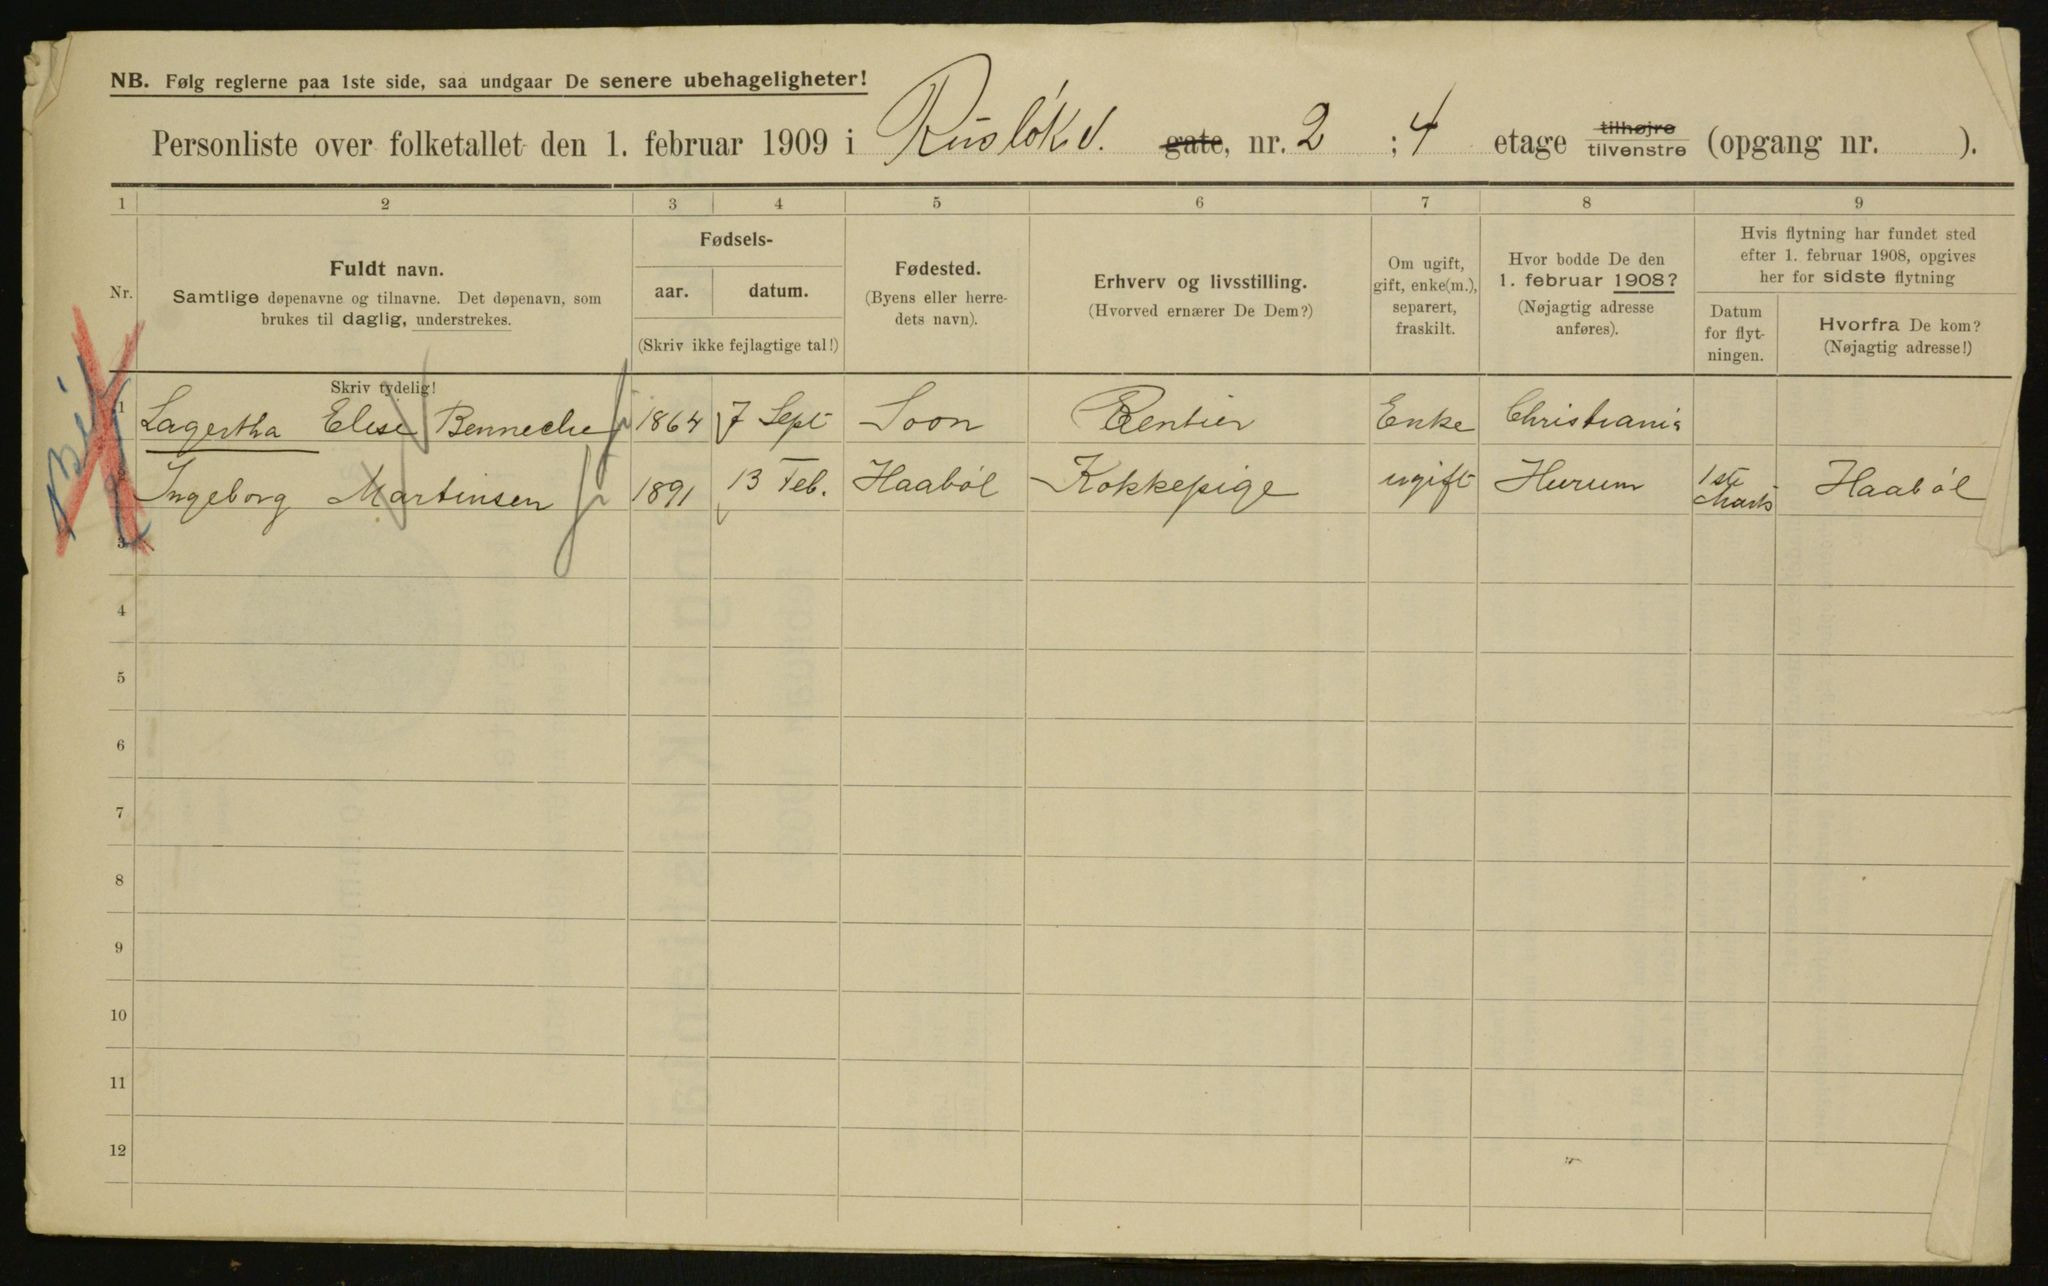 NB. Følg reglerne paa 1ste side, saa undgaar De senere ubehageligheter!
Personliste over folketallet den 1. februar 1909 i Rusløkv. gate, nr. 2 ; 4 etage tilhøjre tilvenstre (opgang nr. ).
1 2 3 4 5 6 7 8 9
Nr.
Fuldt navn.
Samtlige døpenavne og tilnavne. Det døpenavn, som
brukes til daglig, understrekes.
Skriv tydelig!
Fødsels-
aar. datum.
(Skriv ikke fejlagtige tal!)
Fødested.
(Byens eller herre-
dets navn).
Erhverv og livsstilling.
(Hvorved ernærer De Dem?)
Om ugift,
gift, enke(m.),
separert,
fraskilt.
Hvor bodde De den
1. februar 1908?
(Nøjagtig adresse
anføres).
Hvis flytning har fundet sted
efter 1. februar 1908, opgives
her for sidste flytning
Datum
for flyt-
ningen.
Hvorfra De kom?
(Nøjagtig adresse!)
1 Lagertha Elise Benneche 1864 7 Sept Soon Rentier Enke Christiania
2 Ingeborg Martinsen 1891 13 Feb. Haabøl Kokkepige ugift Hurum 1ste Marts Haabøl
3
4
5
6
7
8
9
10
11
12